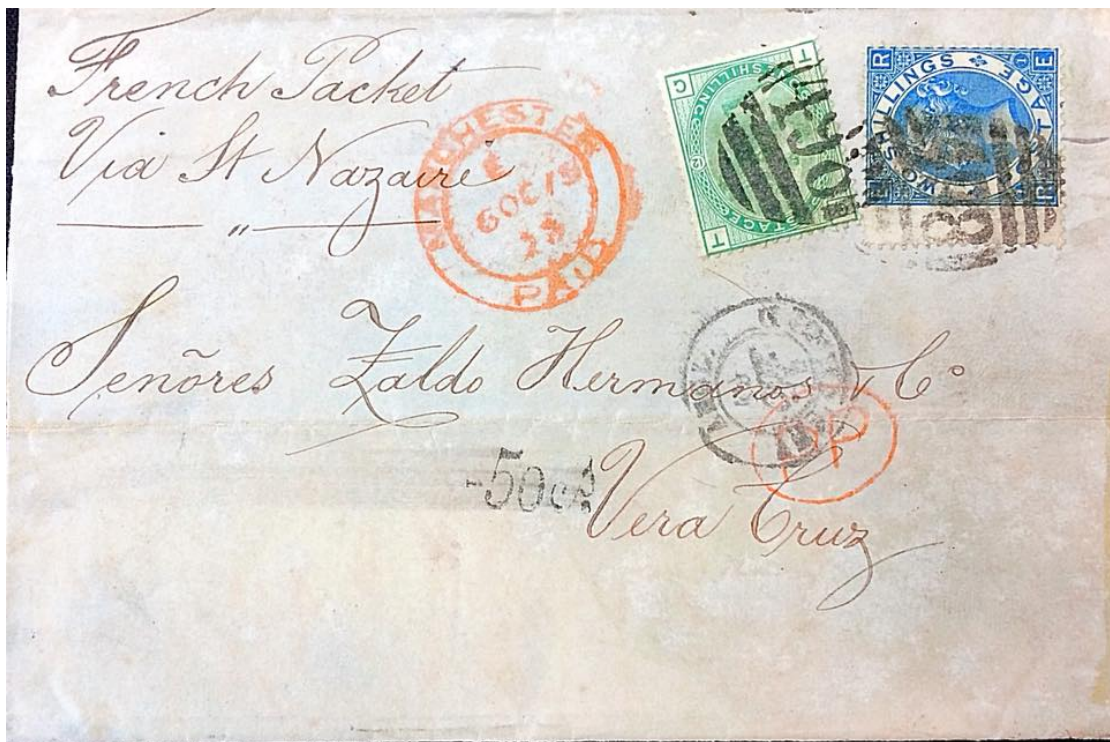 French Packet
Via St Nazaire
"
MANCHESTER
6 OC 15
PAID
T C
SHILLING
POSTAGE
T
R E
TWO SHILLINGS
POSTAGE
E R
Señores Zaldo Hermanos & Cº
PP
Vera Cruz